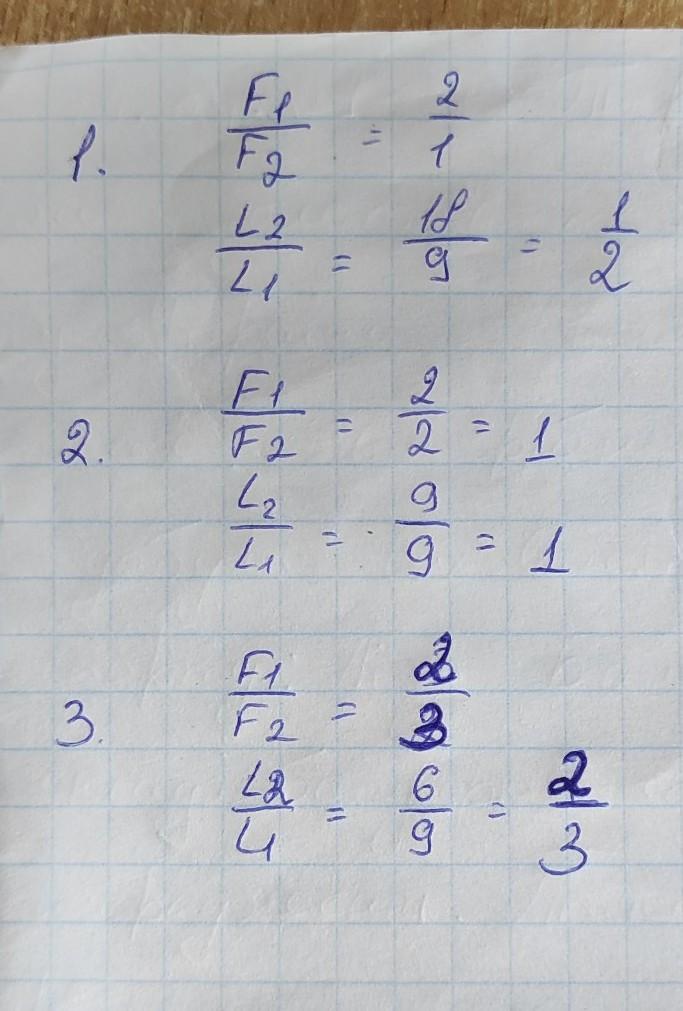 1. F1/F2 = 2/1
L2/L1 = 18/9 = 1/2
2. F1/F2 = 2/2 = 1
L2/L1 = 9/9 = 1
3. F1/F2 = 2/3
L2/L1 = 6/9 = 2/3